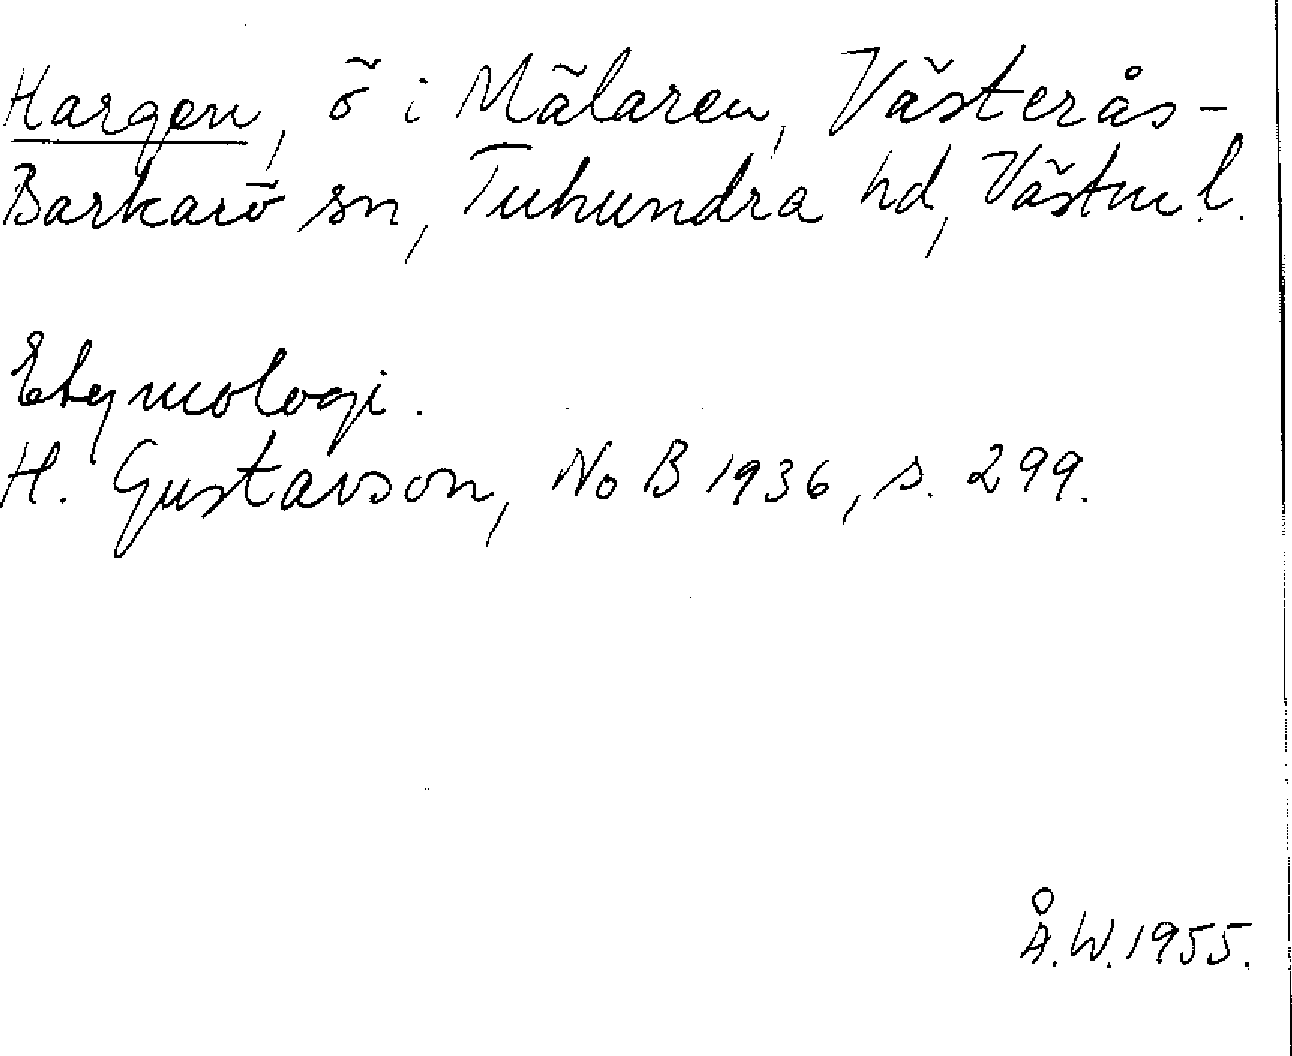 Hargen, ö i Mälaren, Västerås-
Barkarö sn, Tuhundra hd, Västml.
Etymologi.
H. Gustavson, NoB 1936, s. 299.
Å.W. 1955.